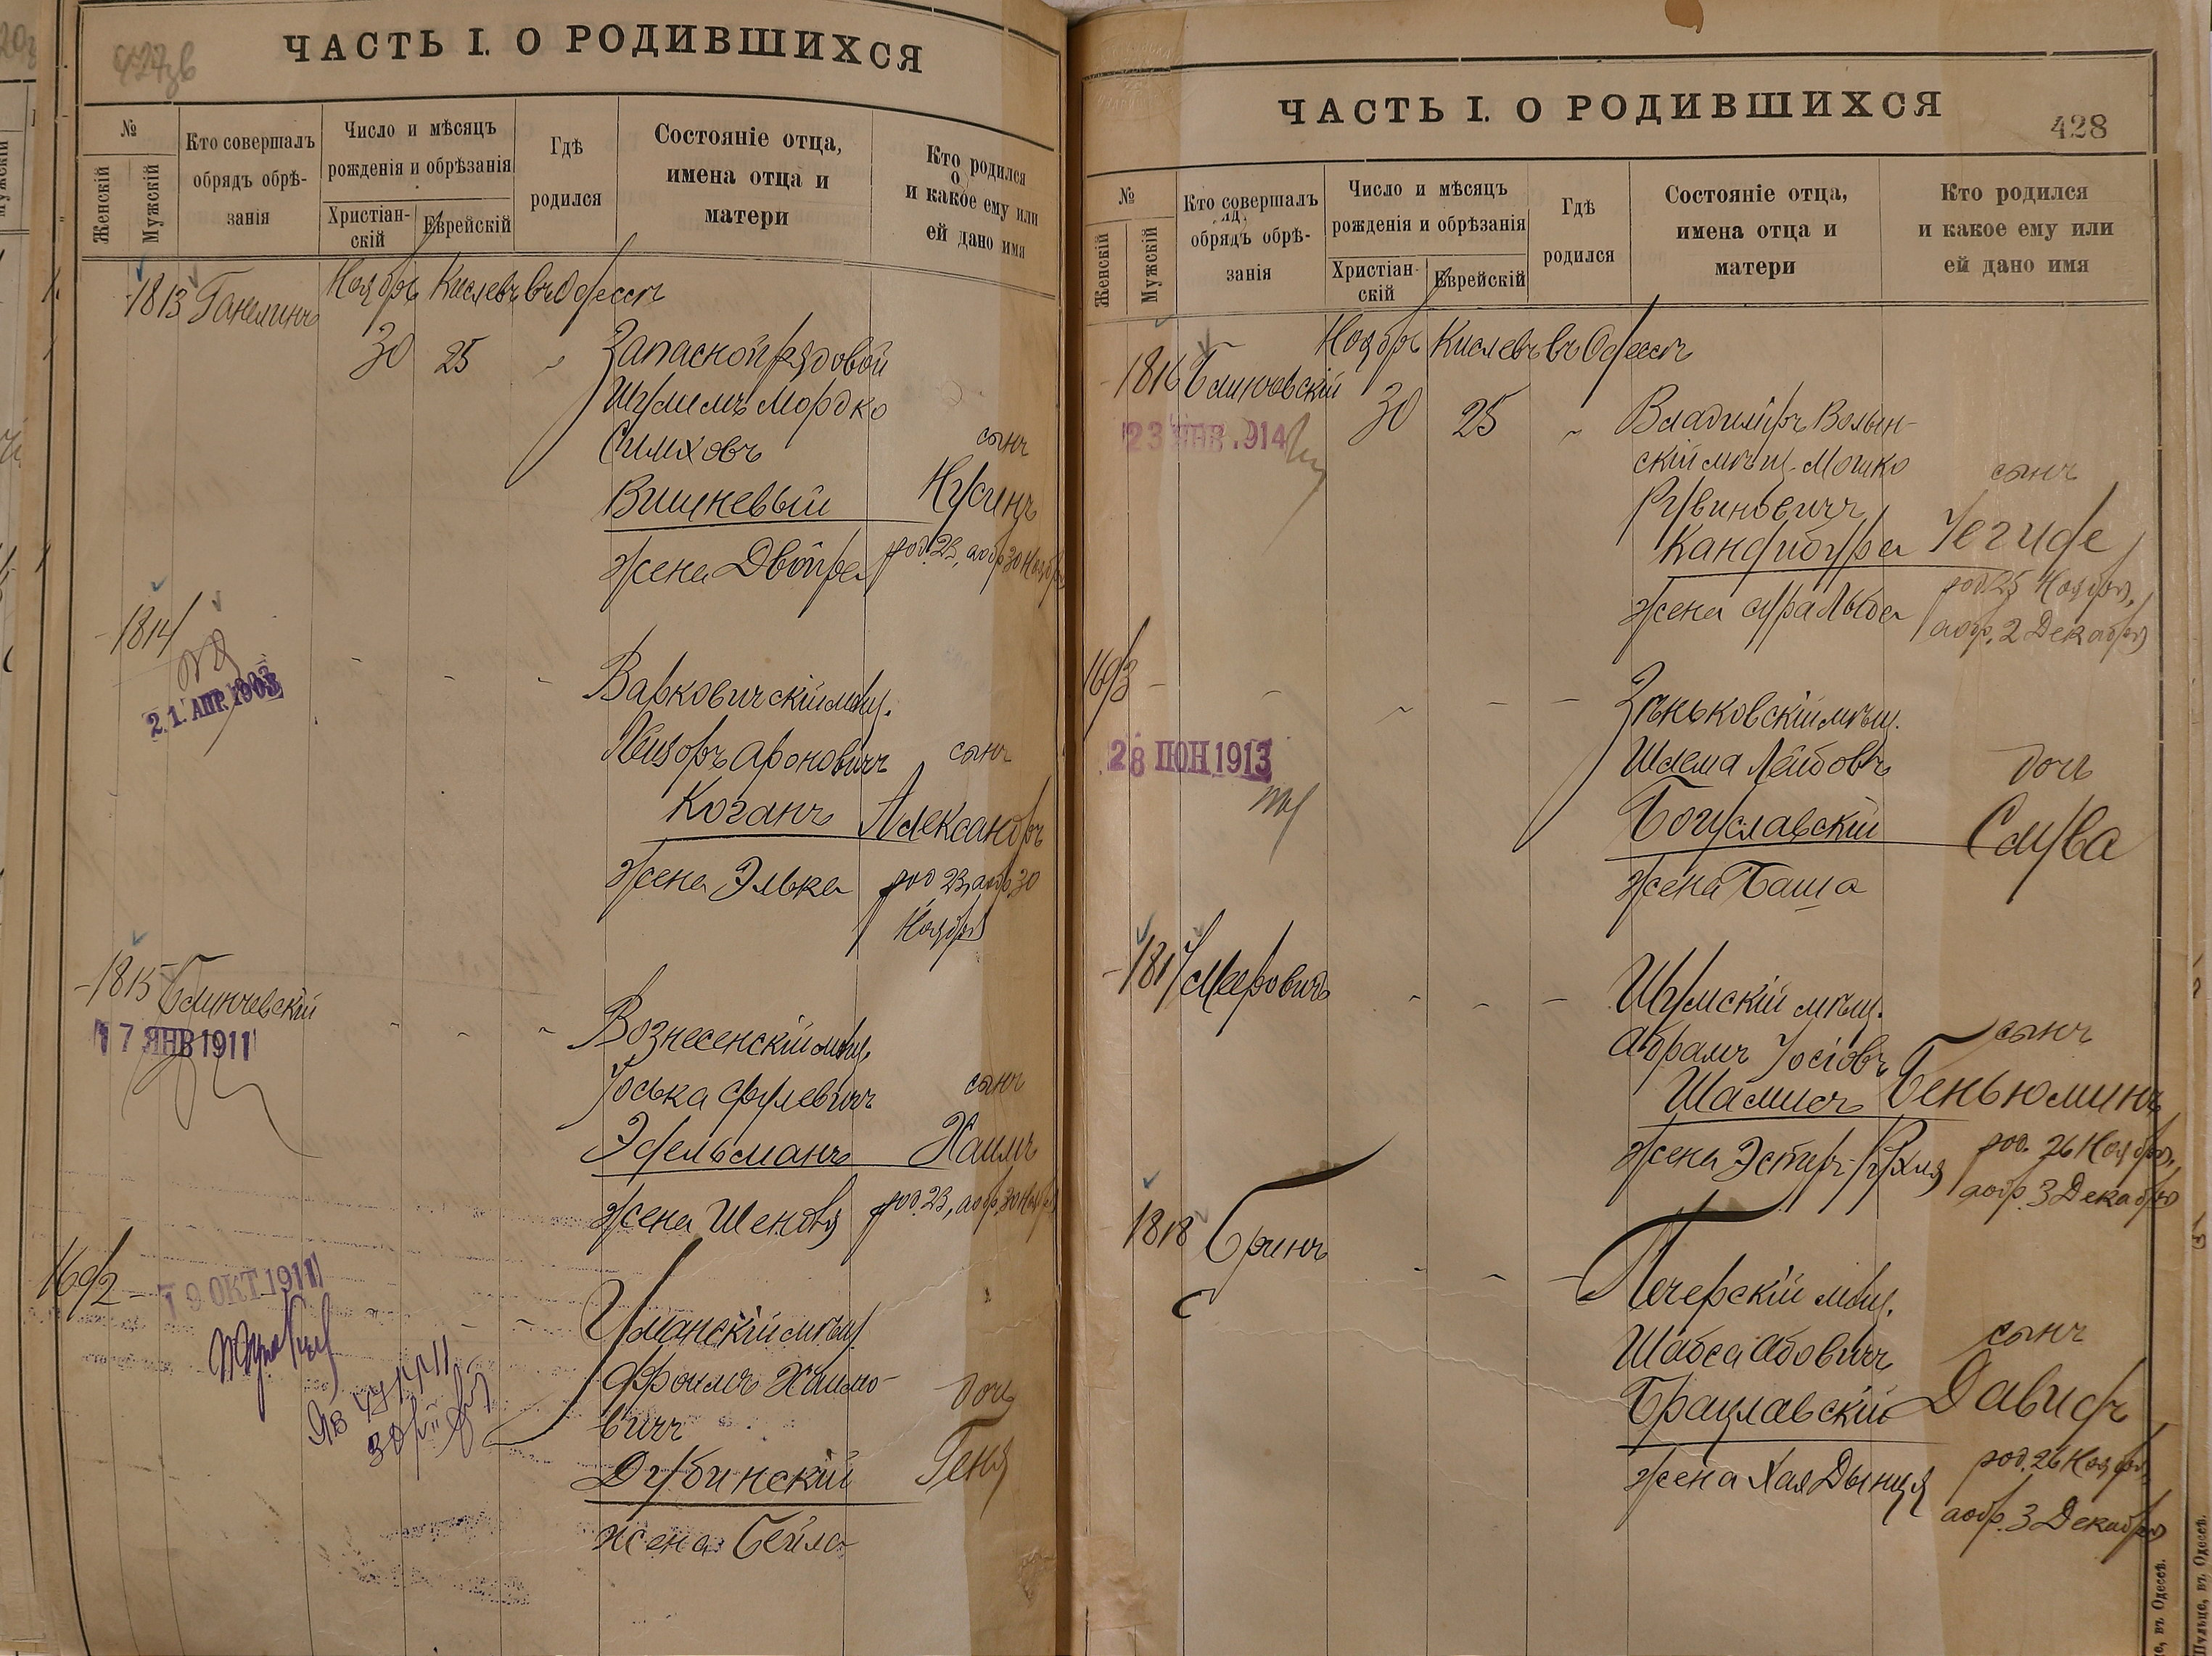 ЧАСТЬ I. О РОДИВШИХСЯ
№
Женскій
Мужскій
Кто совершалъ обрядъ обрѣ-
занія
Число и мѣсяцъ
рожденія и обрѣзанія
Христіан-
скій
Еврейскій
Гдѣ
родился
Состояніе отца,
имена отца и
матери
Кто родился
и какое ему или
ей дано имя
1813 Ганелинъ
Ноябрь Кислевъ въ Одессѣ
30 25 "
Запасной рядовой
Шулимъ Мордко
Симховъ
Вишневый
жена Двойра
сынъ
Нусинъ
род. 23, а обр. 30 Ноября
1814
21. АПР. 1903
Варковичскій мѣщ.
Лейзоръ Ароновичъ
Коганъ
жена Элька
сынъ
Александръ
род 23, а обр 30
Ноября
1815 Блинчевскій
17 ЯНВ 1911
Вознесенскій мѣщ.
Іоська Срулевичъ
Эдельманъ
жена Шендля
сынъ
Хаимъ
род. 23, а обр. 30 Ноября
1602
19 ОКТ. 1911
Уманскій мѣщ.
Фроимъ Хаимо-
вичъ
Дубинскій
жена Бейла
дочь
Геня
ЧАСТЬ I. О РОДИВШИХСЯ
428
№
Женскій
Мужскій
Кто совершалъ
обрядъ обрѣ-
занія
Число и мѣсяцъ
рожденія и обрѣзанія
Христіан-
скій
Еврейскій
Гдѣ
родился
Состояніе отца,
имена отца и
матери
Кто родился
и какое ему или
ей дано имя
1816 Блинчовскій
Ноябрь Кислевъ въ Одессѣ
30 25 "
23 ЯНВ. 914
Владиміръ Волын-
скій мѣщ. Мошко
Рувиновичъ
Кандибура
жена Сура Либа
сынъ
Іегуде
род. 25 Ноября,
а обр. 2 Декабря
1603
28 ІЮН 1913
Зѣньковскій мѣщ.
Шлема Лейбовъ
Богуславскій
жена Баша
дочь
Слува
1817 Мееровичъ
Шумскій мѣщ.
Абрамъ Іосіовъ
Шамисъ
жена Эстеръ-Рухля
сынъ
Беньюминъ
род. 26 Ноября,
а обр. 3 Декабря
1818 Бринъ
Печерскій мѣщ.
Шабса Абовичъ
Брацлавскій
жена Хая Дынця
сынъ
Давидъ
род. 26 Ноября,
а обр. 3 Декабря
въ Одессѣ.
въ Одессѣ.